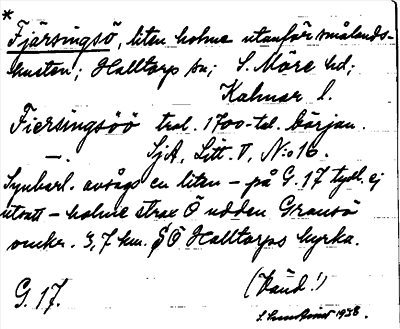 *
Fjärsingsö, liten holme utanför smålands-
kusten; Halltorp sn; S. Möre hd;
Kalmar l.
Fiersingsöö trol. 1700-tal. början.
—. SjA, Litt. V, N:o 16.
Synbarl. avsågs en liten – på G. 17 tydl. ej
utsatt – holme strax Ö udden Gransö
omkr. 3,7 km. SÖ Halltorps kyrka.
G. 17. (Vänd!)
1938.